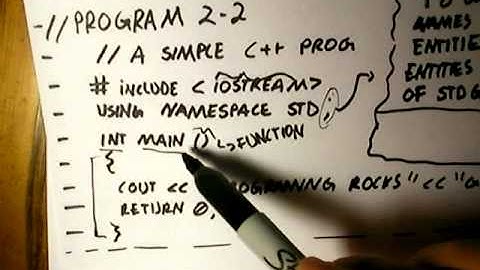 // PROGRAM 2-2
// A SIMPLE C++ PROG
# INCLUDE <IOSTREAM>
USING NAMESPACE STD;
INT MAIN () → FUNCTION
{
COUT << ROCKS" << "
RETURN 0;
}
NAMES
ENTITIE
ENTITIES
OF STD